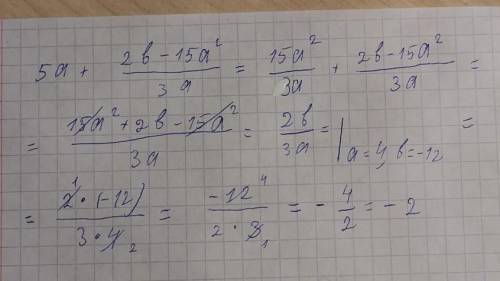 5a + (2b - 15a²)/(3a) = 15a²/(3a) + (2b - 15a²)/(3a) =
= (15a² + 2b - 15a²)/(3a) = 2b/(3a) = | a = 4, b = -12 =
= (2 1 · (-12))/(3 · 4 2) = (-12 4)/(2 · 3 1) = - 4/2 = - 2